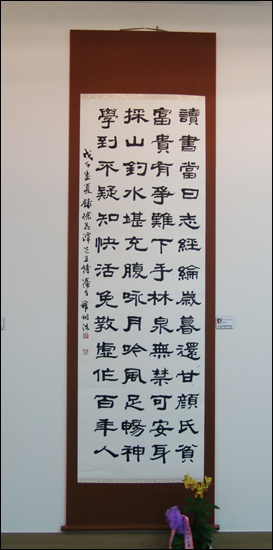 讀書當日志經綸歲暮還甘顏氏貧
富貴有爭難下手林泉無禁可安身
採山釣水堪充腹咏月吟風足暢神
學到不疑知快活免教虛作百年人
戊子盛夏錄徐花潭先生詩